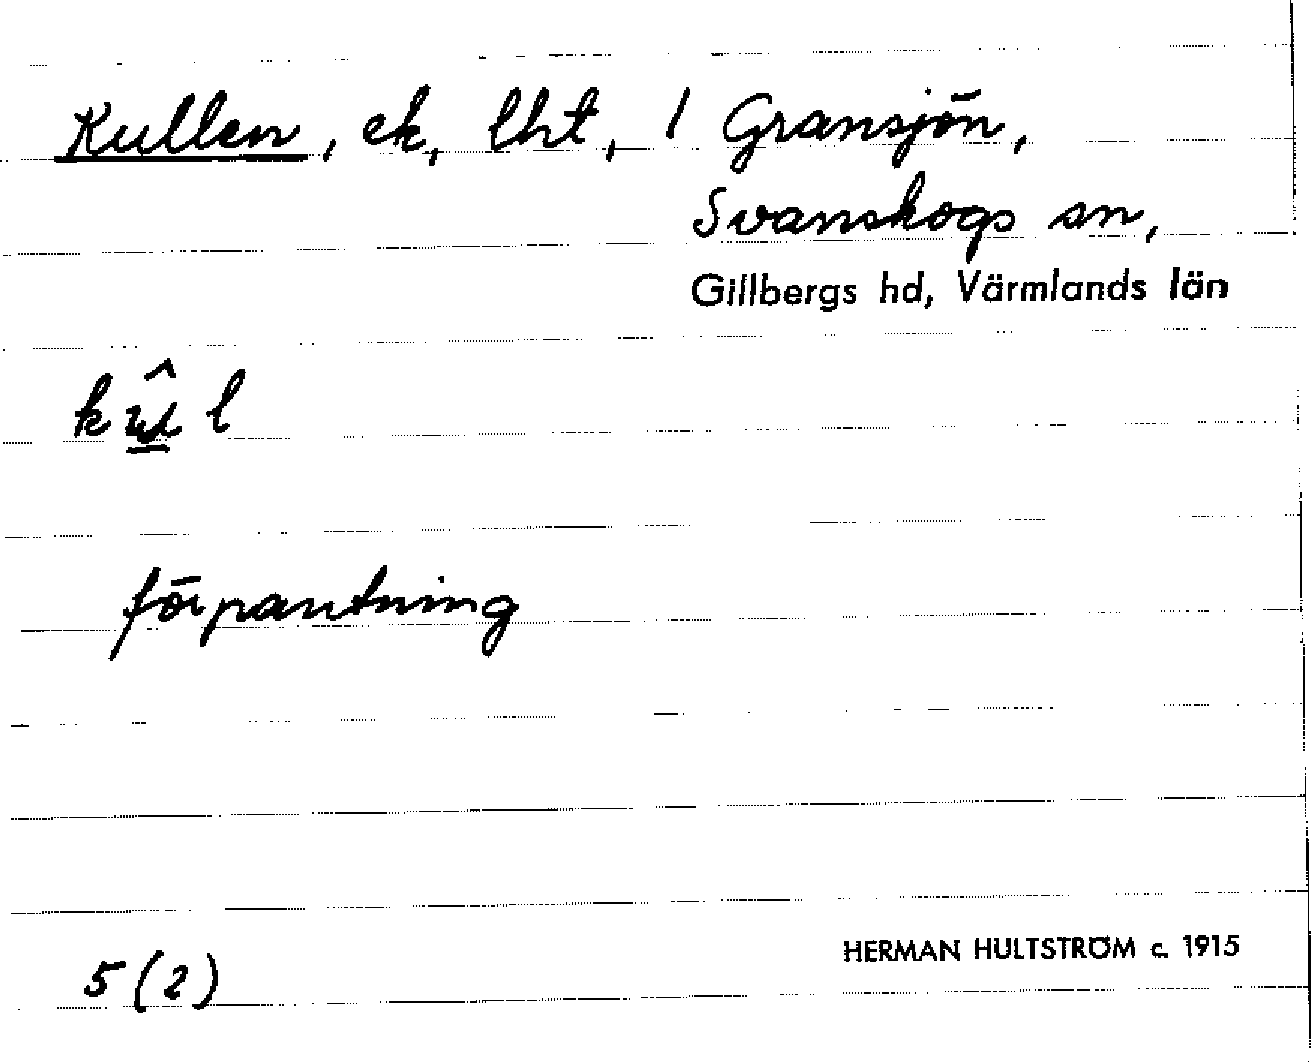 Kullen, ek, lht, 1 Gransjön,
Svanskogs sn,
Gillbergs hd, Värmlands län
förpantning
5 (2)
HERMAN HULTSTRÖM c. 1915